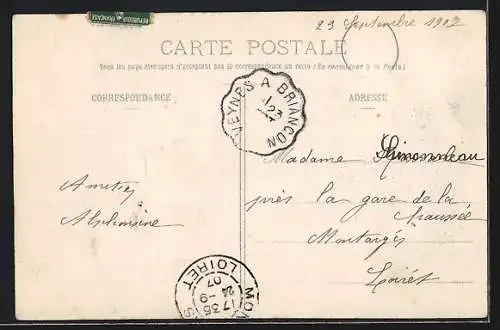 RÉPUBLIQUE FRANÇAISE
23 Septembre 1907
CARTE POSTALE
Tous les pays étrangers n'acceptent pas la correspondance au recto (Se renseigner à la Poste)
CORRESPONDANCE
ADRESSE
VEYNES A BRIANÇON
23
Madame Simonneau
près la gare de la
Chaussée
Montargis
Loiret
Amitiés
Alphonsine
LOIRET
17 35
24 - 9
07